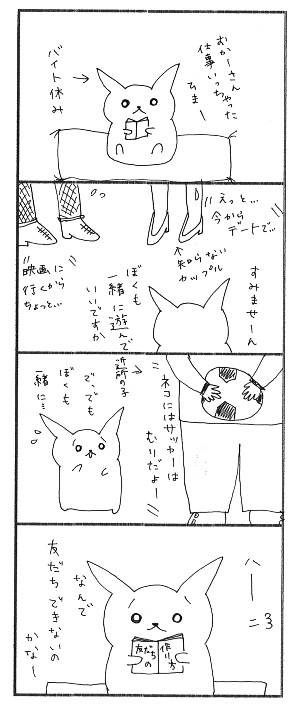 おかーさん
仕事いっちゃった
ひまー
バイト休み
えっと…
今から
デートで…
知らない
カップル
すみませーん
ぼくも
一緒に遊んで
いいですか
映画に
行くから
ちょっと…
ネコにはサッカーは
むりだよー
近所の子
で、でも
ぼくも
一緒に…
ハーニョ
友だちの
作り方
なんで
友だちできないの
かなー